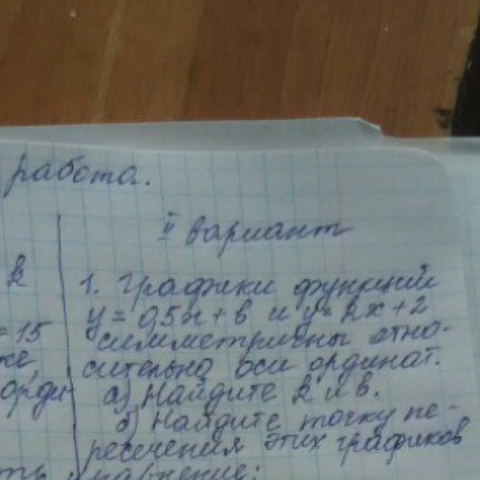 работа.
II вариант
k
1. Графики функций
y = 0,5x + b и y = kx + 2
= 15
симметричны отно-
сительно оси ординат.
орди
а) Найдите k и b.
б) Найдите точку пе-
ресечения этих графиков